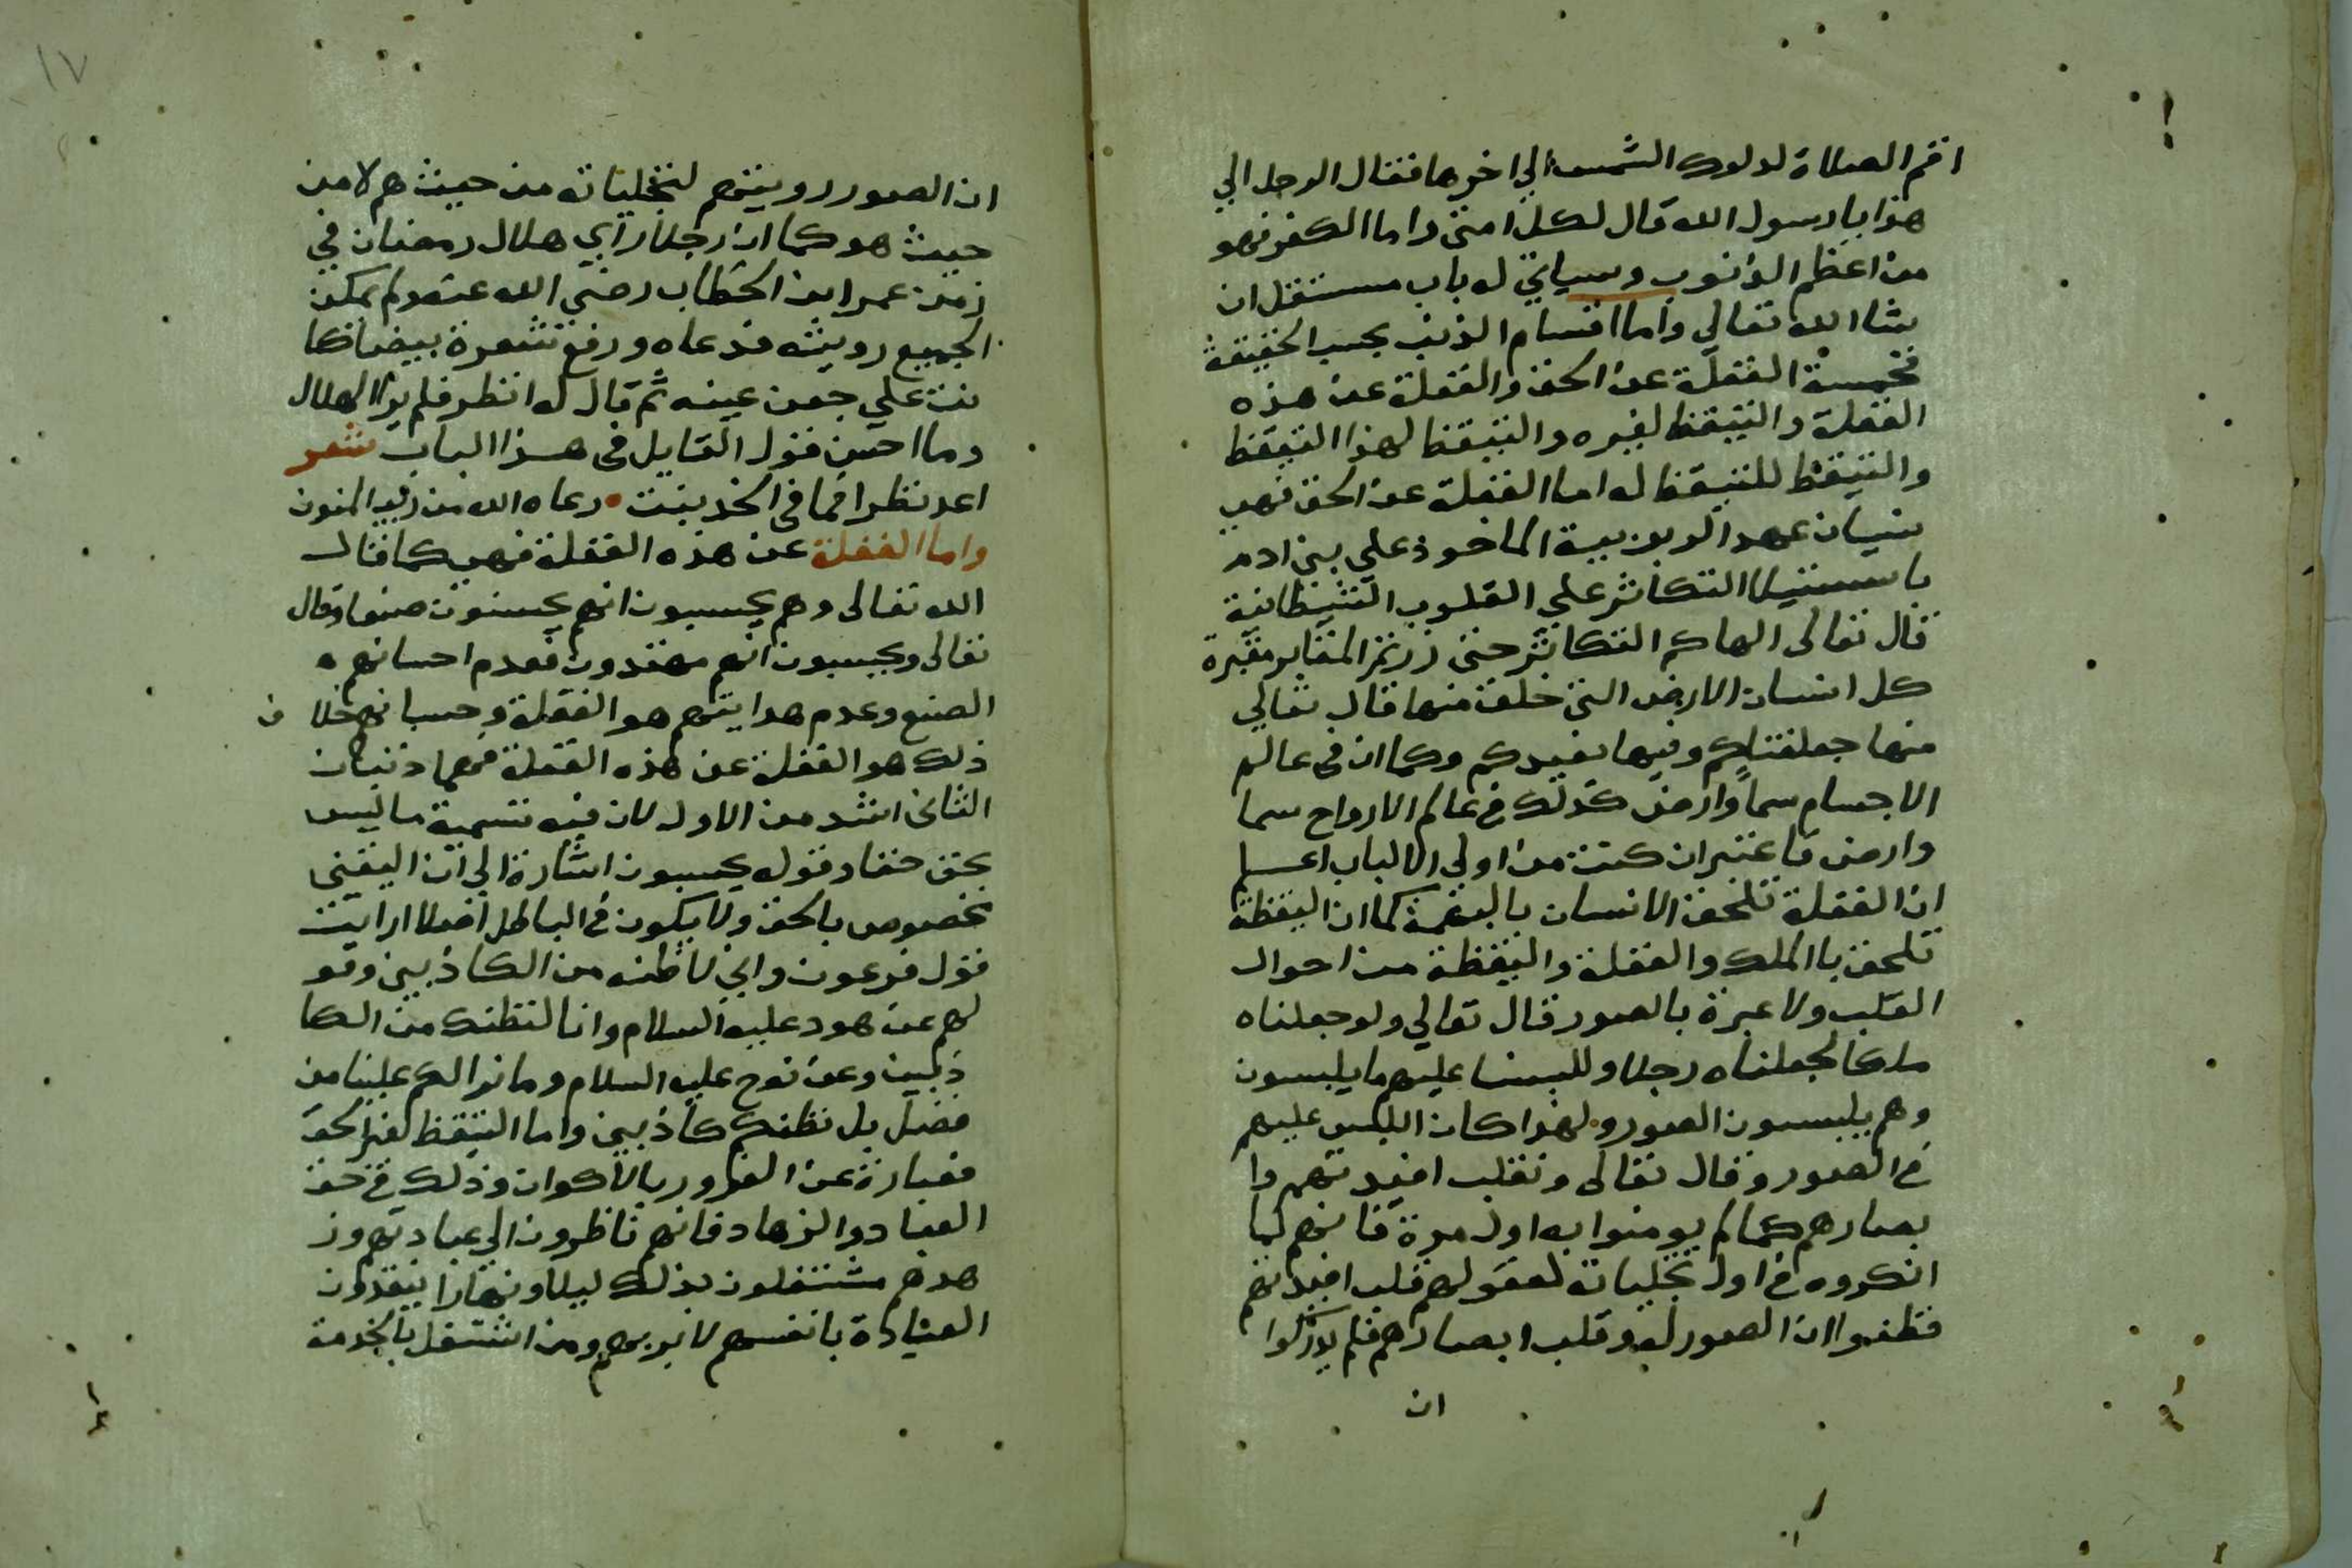 اقم الصلاة لدلوك الشمس الي اخرها فقال الرجل الي
هذا يا رسول الله قال لكل امتي واما الكفر فهو
من اعظم الذنوب وسياتي له باب مستقل ان
شا الله تعالي واما اقسام الذنب بحسب الحقيقة
فخمسة الغفلة عن الحق والغفلة عن هذه
الغفلة والتيقظ لغيره والتيقظ لهذا التيقظ
والتيقظ للتيقظ له اما الغفلة عن الحق فهي
نسيان عهد الربوبية الماخوذ علي بني ادم
باستيلا التكاثر علي القلوب الشيطانية
قال تعالى الهاكم التكاثر حتى زرتم المقابر مقبرة
كل انسان الارض التي خلق منها قال تعالي
منها جعلقناكم وفيها نعيدكم وكما ان في عالم
الاجسام سماً وارض كذلك في عالم الارواح سما
وارض فاعتبر ان كنت من اولي الالباب اعلم
ان الغفلة تلحق الانسان بالبهيمة كما ان اليقظة
تلحق باالملك والغفلة واليقظة من احوال
القلب ولا عبرة بالصور قال تعالي ولو جعلناه
ملكا لجعلناه رجلا وللبسنا عليهم ما يلبسون
وهم يلبسون الصور ولهذا كان اللبس عليهم
في الصور وقال تعالى ونقلب افيدتهم وا
بصارهم كما لم يومنوا به اول مرة فانهم لما
انكروه في اول تجلياته لعقولهم قلب افيدتهم
فظنوا ان الصور له وقلب ابصارهم فلم يدركوا
ان
١٧
ان الصور رويتهم لتجلياته من حيث هم لا من
حيث هو كما ان رجلا راي هلال رمضان في
زمن عمر ابن الخطاب رضي الله عنه ولم يمكن
الجميع رويته فدعاه ورفع شعرة بيضا كا
نت علي جفن عينه ثم قال له انظر فلم ير الهلال
وما احسن قول القايل في هذا الباب شعر
اعد نظرا فما في الخد نبت رعاه الله من ريب المنون
واما الغفلة عن هذه الغفلة فهي كما قال
الله تعالى وهم يحسبون انهم يحسنون صنعا وقال
تعالى ويحسبون انهم مهتدون فعدم احسانهم
الصنع وعدم هدايتهم هو الغفلة وحسبانهم خلا ف
ذلك هو الغفلة عن هذه الغفلة فهما ذنبان
الثاني اشد من الاول لان فيه تسمية ما ليس
بحق حقا وقوله يحسبون اشارة الي ان اليقين
مخصوص بالحق ولا يكون في الباطل اصلا ارايت
قول فرعون واني لاظنه من الكاذبين وقو
لهم عن هود عليه السلام وانا لنظنك من الكا
ذبين وعن نوح عليه السلام وما نرا لكم علينا من
فضل بل نظنكم كاذبين واما التيقظ لغير الحق
فعبارة عن الغرور بالاكوان وذلك في حق
العباد والزهاد فانهم ناظرون الي عبادتهم وز
هدهم مشتغلون بذلك ليلا ونهارا يتقدون
العبادة بانفسهم لا بربهم ومن اشتغل بالخدمة